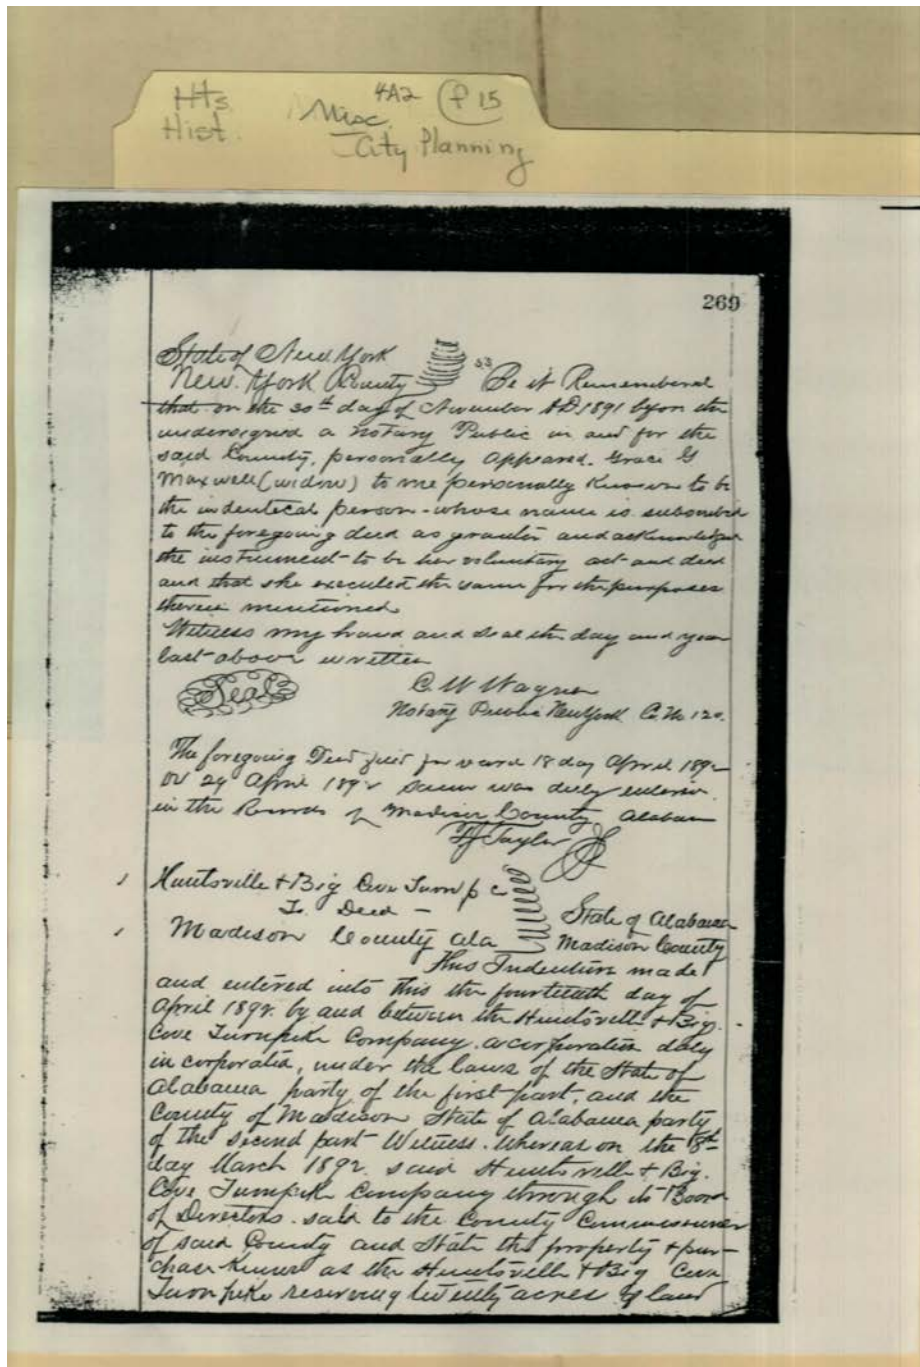 Hts. Hist.
Misc. 4A2 f 15
City Planning
269
State of New York
New York County ss Be it Remembered
that on the 30th day of November AD 1891 before the
undersigned a Notary Public in and for the
said County, personally appeared. Grace G
Maxwell (widow) to me personally Known to be
the indentical person whose name is subscribed
to the foregoing deed as grantor and acknowledged
the instrument to be her voluntary act and deed
and that she executed the same for the purposes
therein mentioned
Witness my hand and seal the day and year
last above written
Seal C. W Wagner
Notary Public New York Co. No 120.
The foregoing Deed filed for record 18 day April 1892
on 29 April 1892 same was duly
in the Records of Madison County Alabam
Taylor
Huntsville & Big Cove Turn p c
To Deed -
State of Alabama
Madison County Ala Madison County
This Indenture made
and entered into this the fourteenth day of
April 1892. by and between the Huntsville & Big
Cove Turnpike Company. a corporation duly
in corporated, under the laws of the State of
Alabama party of the first part, and the
County of Madison State of Alabama party
of the second part Witness. Whereas on the 8th
day March 1892. said Huntsville & Big.
Cove Turnpike Company through its Board
of Directors. sold to the County Commissioner
of said County and State the property & pur-
chase Known as the Huntsville & Big Cove
Turnpike reserving twenty acres of land